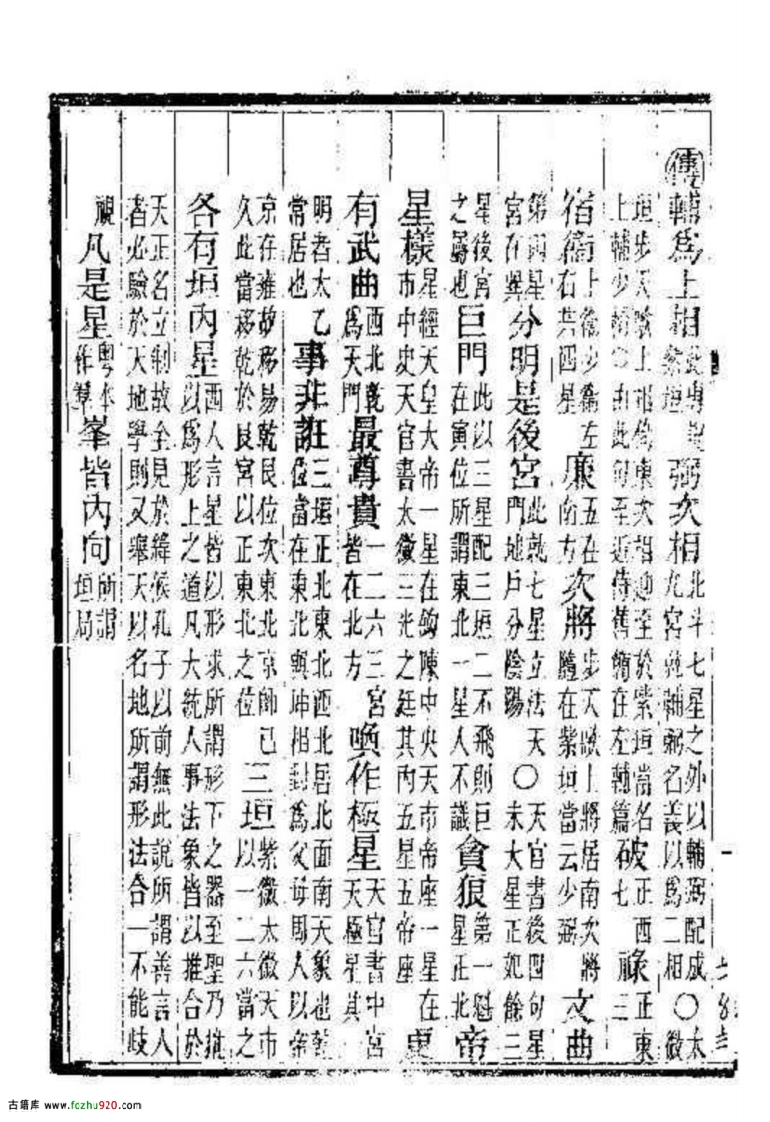 傳輔為上相此專是紫垣弼次相北斗七星之外以輔弼配成九宮故輔弼名義以為二相〇太微
垣步天歌上相傍東次相迎至於紫垣當名上輔少輔〇由此句至近侍舊簡在左輔篇破正西七祿正東三
宿衛上衛少衛左右共四星廉五在南方次將步天歌上將居南次將隨在紫垣當云少弼文曲
第四星宮在巽分明是後宮此就七星立法天門地戶分陰陽〇天官書後四句星末大星正妃餘三
星後宮之屬也巨門此以三星配三垣二不飛則巨在寅位所謂東北一星人不識貪狼第一魁星正北帝
星樣星經天皇大帝一星在鉤陳中央天市帝座一星在市中史天官書太微三光之廷其內五星五帝座更
有武曲西北乾為天門最尊貴一二六三宮皆在北方喚作極星天官書中宮天極星其
明者太乙常居也事非誑非三垣正北東北西北居北面南天象也乾位當在東北與坤相對為父母周人以帝
京在雍故移易乾艮位次東北京師已久此當移乾於艮宮以正東北之位三垣紫微太微天市以一二六當之
各有垣內星西人言星皆以形求所謂形下之器至聖乃推以為形上之道凡大統人事法象皆以推合於
天正名立制故全見於緯候孔子以前無此說所謂善言人者必驗於天地學則又舉天以名地所謂形法合一不能歧
視凡是星粵本作羣峯皆內向所謂垣局
古籍库 www.fozhu920.com